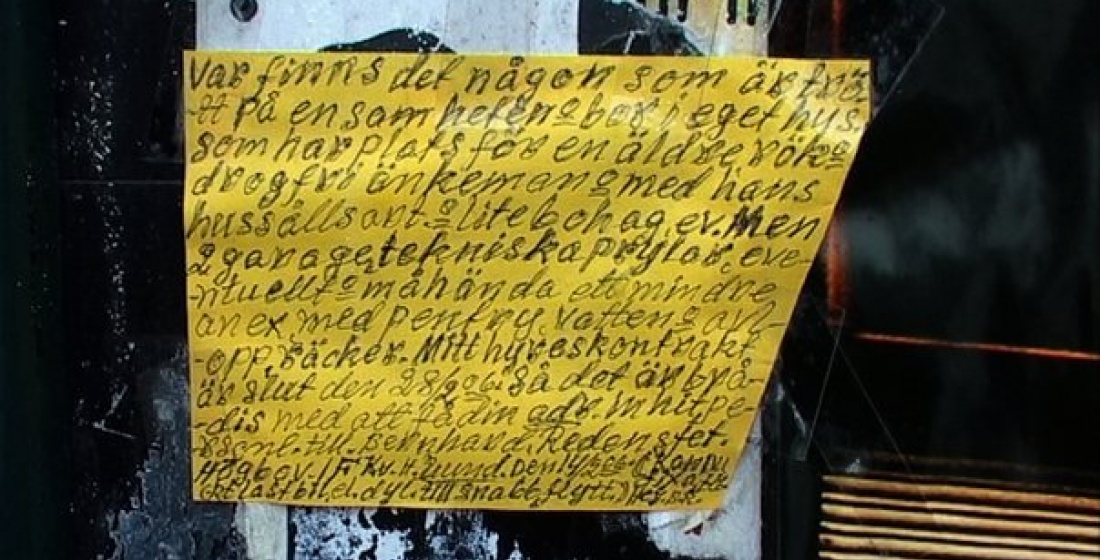 Var finns det någon som är trö-
-tt på ensamheten o bor i eget hus.
som har plats för en äldre rök o
drogfri änkeman o med hans
hussållsart o lite bohag, ev. Men
o garage, tekniska prylar, eve-
-ntuellt o måhända ett mindre
anex med pentry, vatten o avl-
-opp, räcker. Mitt hyreskontrakt
är slut den 28/2 06. Så det är brå-
-dis med att få din adr. inhitpe-
till. Bernhard. Redenstet.
Högbov. 1 F Kv. H. Den
lastbil, el. dyl. till snabb flytt.)